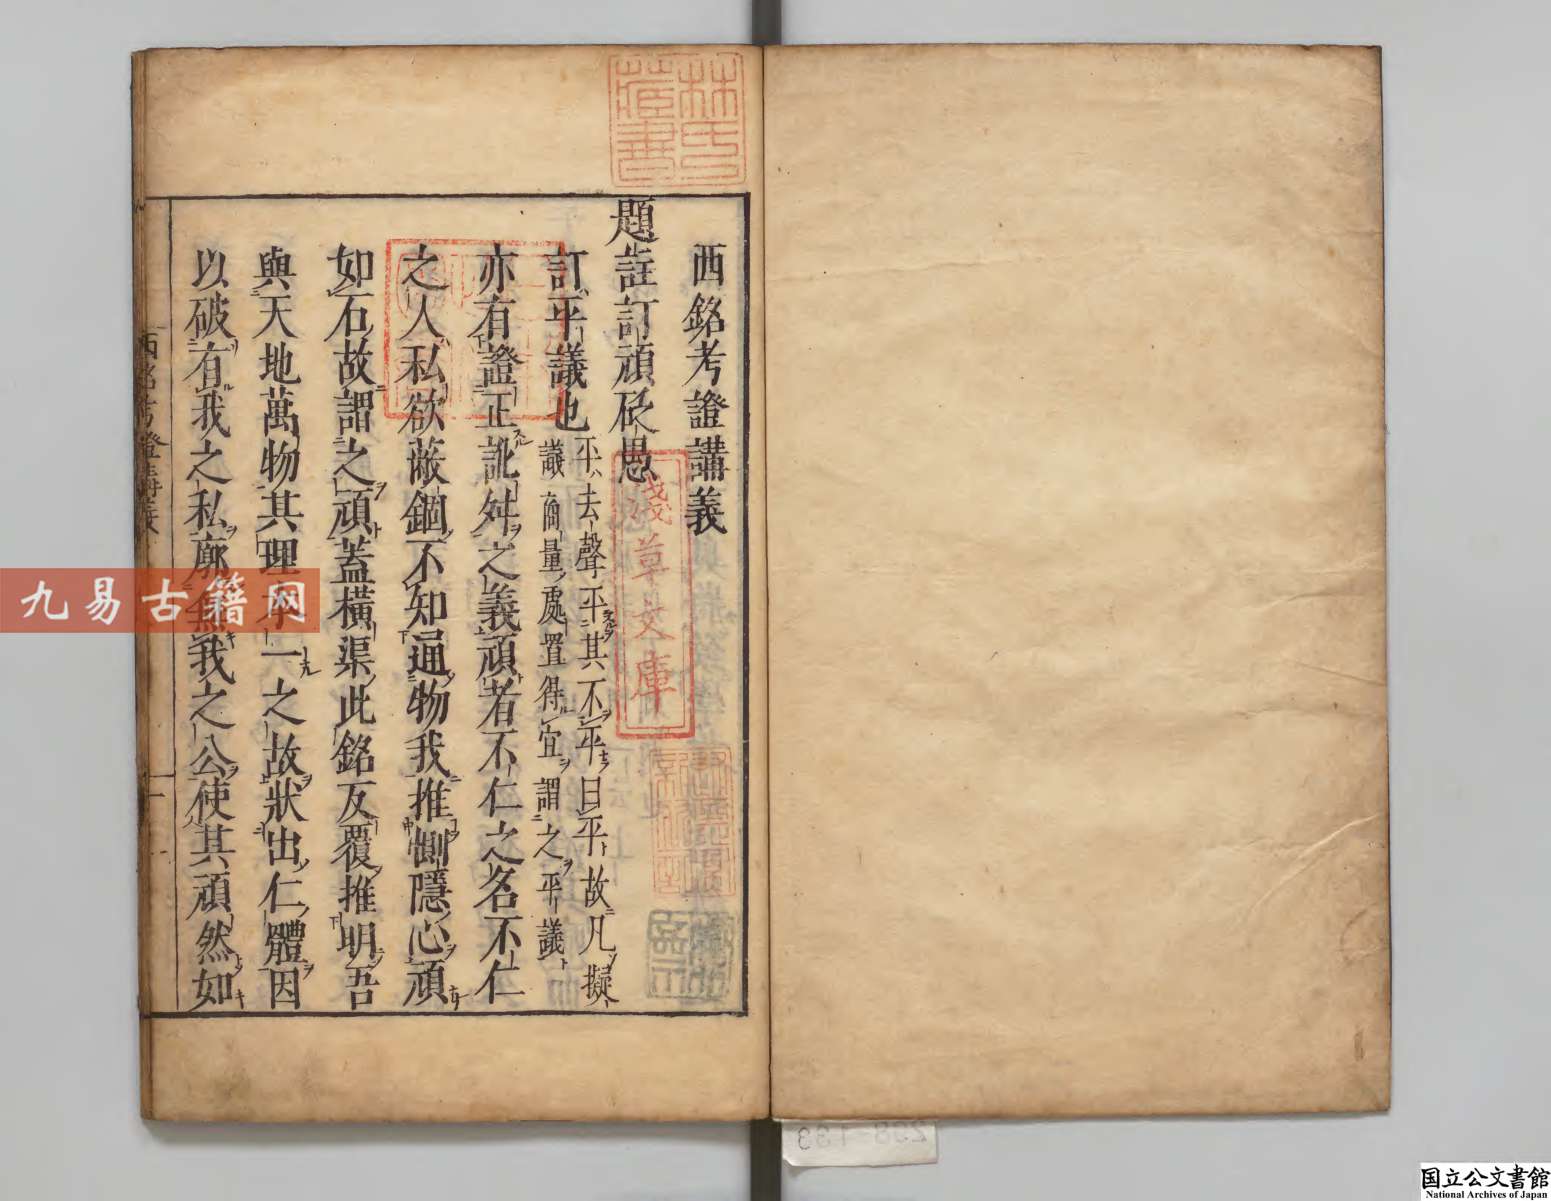 西銘考證講義
題註訂頑砭愚
訂平議也
平去聲平其不平曰平故凡擬
議商量處置得宜謂之平議
亦有證正訛舛之義頑者不仁之名不仁
之人私欲蔽錮不知通物我推惻隱心頑
如石故謂之頑蓋橫渠此銘反覆推明吾
與天地萬物其理本一之故狀出仁體因
以破有我之私廓無我之公使其頑然如
西銘考證講義
林氏藏書
淺草文庫
九易古籍网
298-133
国立公文書館
National Archives of Japan